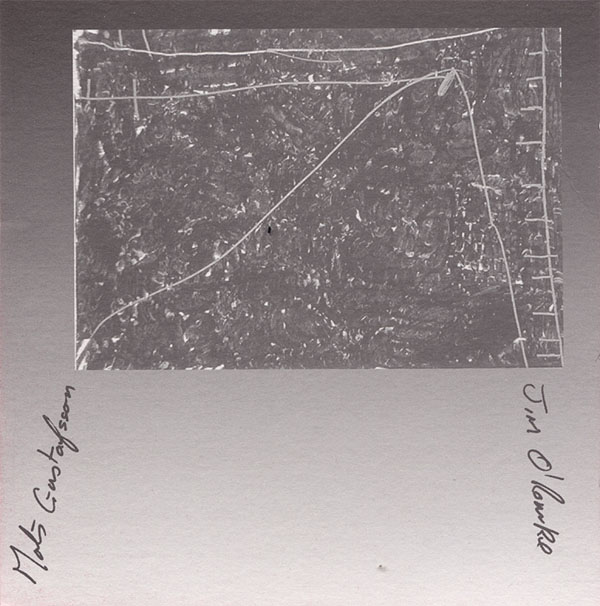 Mats Gustafsson
Jim O'Rourke